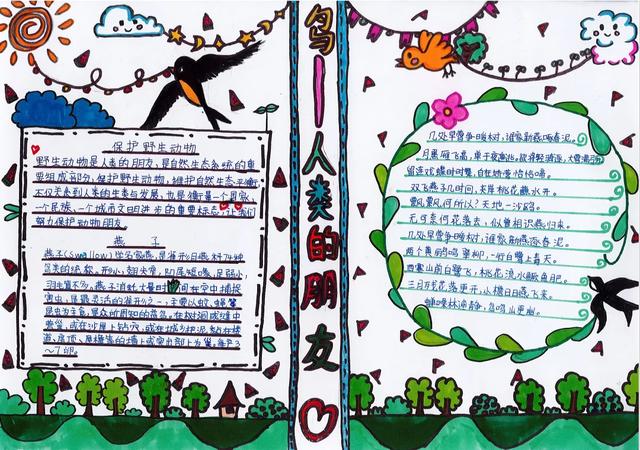 鸟—人类的朋友
保护野生动物
野生动物是人类的朋友,是自然生态系统的重
要组成部分,保护野生动物,维护自然生态平衡,
不仅关系到人类的生善与发展,也是衡量一个国家、
一个民族、一个城市文明进步的重要标志,让我们
努力保护动物朋友。
燕子
燕子(Swallow)学名家燕,是雀形目燕科74种
鸟类的统称,形小,翅尖窄,凹尾短喙,足弱小,
羽毛算不多,燕子消耗大量时间在空中捕捉
害虫,是最灵活的雀形类之一,主要以蚊、蝇等
昆虫为主食,是众所周知的益鸟。在树洞或缝中
营巢,或在沙岸上钻穴,或在城乡把泥黏在楼
道、房顶、屋檐等的墙上或突出部上为巢。每产3
~7卵。
几处早莺争暖树,谁家新燕啄春泥。
月黑雁飞高,单于夜遁逃,欲将轻骑逐,大雪满弓刀
留连戏蝶时时舞,自在娇莺恰恰啼。
双飞燕子几时回,夹岸桃花蘸水开。
飘飘何所似?天地一沙鸥。
无可奈何花落去,似曾相识燕归来。
几处早莺争暖树,谁家新燕啄春泥。
两个黄鹂鸣翠柳,一行白鹭上青天。
西塞山前白鹭飞,桃花流水鳜鱼肥。
三月残花落更开,小檐日日燕飞来。
蝉噪林逾静,鸟鸣山更幽。